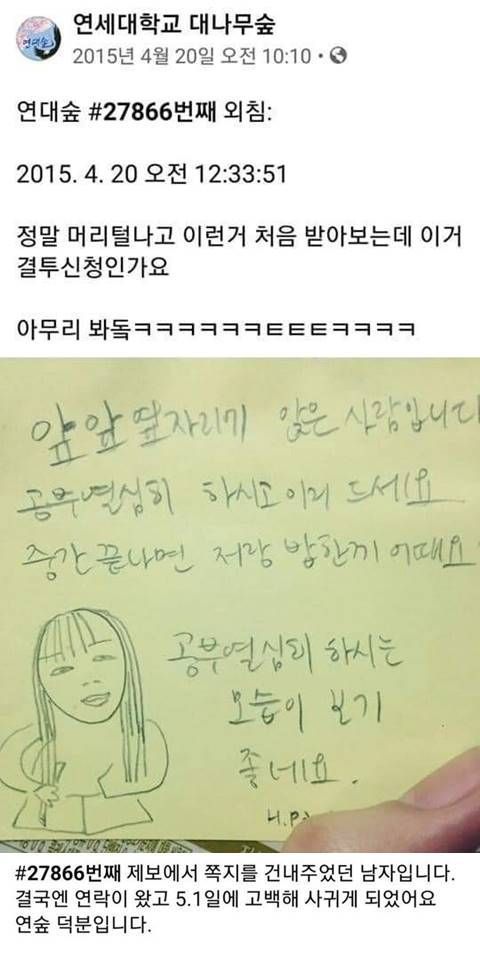 연세대학교 대나무숲
2015년 4월 20일 오전 10:10 ·
연대숲 #27866번째 외침:
2015. 4. 20 오전 12:33:51
정말 머리털나고 이런거 처음 받아보는데 이거
결투신청인가요
아무리 봐돜ㅋㅋㅋㅋㅋㅋㅌㅌㅌㅋㅋㅋㅋ
앞앞 옆자리기 앉은 사람입니다
공부열심히 하시고 이리 드세요
중간 끝나면 저랑 밥한끼 어때요
공부열심히 하시는
모습이 보기
좋네요.
H.P)
#27866번째 제보에서 쪽지를 건내주었던 남자입니다.
결국엔 연락이 왔고 5.1일에 고백해 사귀게 되었어요
연숲 덕분입니다.